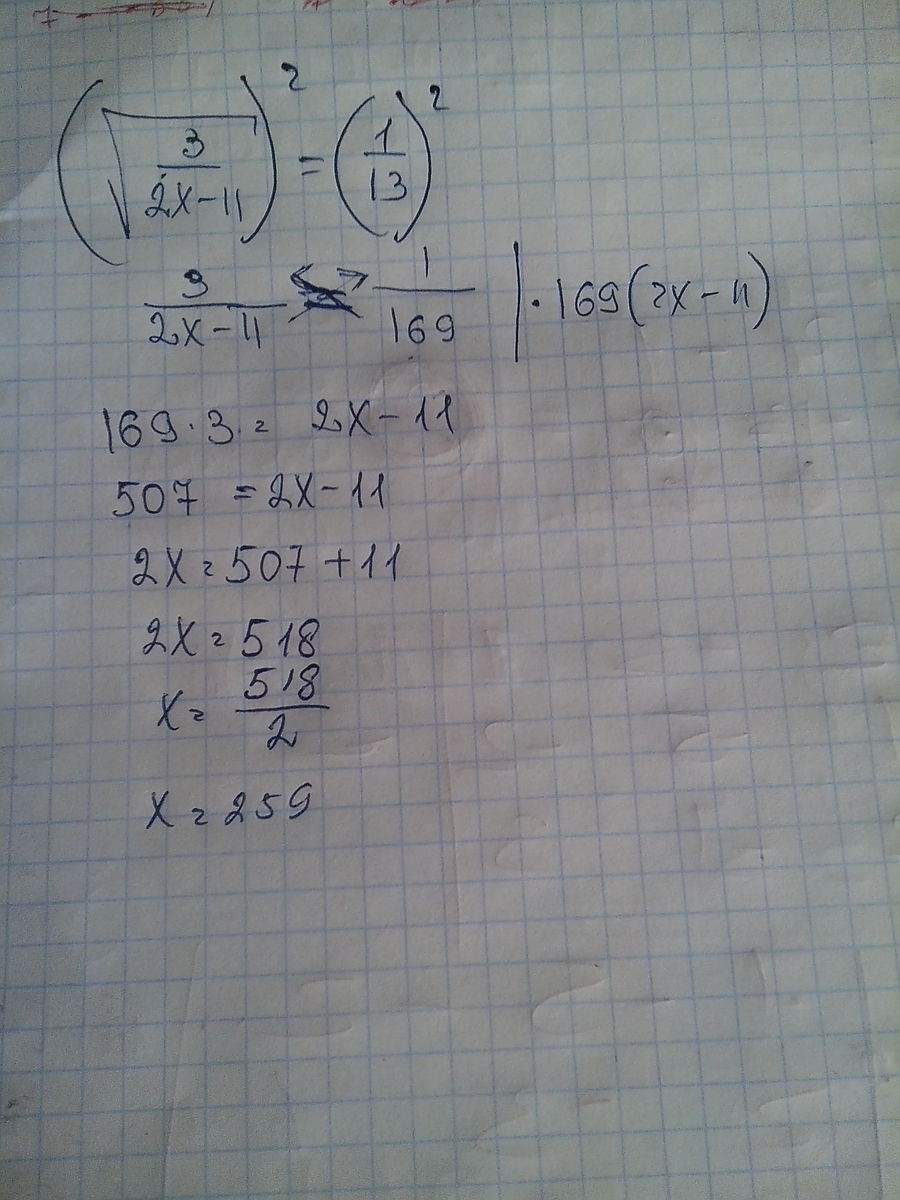 (√(3/(2x-11)))² = (1/13)²
3/(2x-11) = 1/169 | · 169(2x-11)
169·3 = 2x-11
507 = 2x-11
2x = 507+11
2x = 518
x = 518/2
x = 259